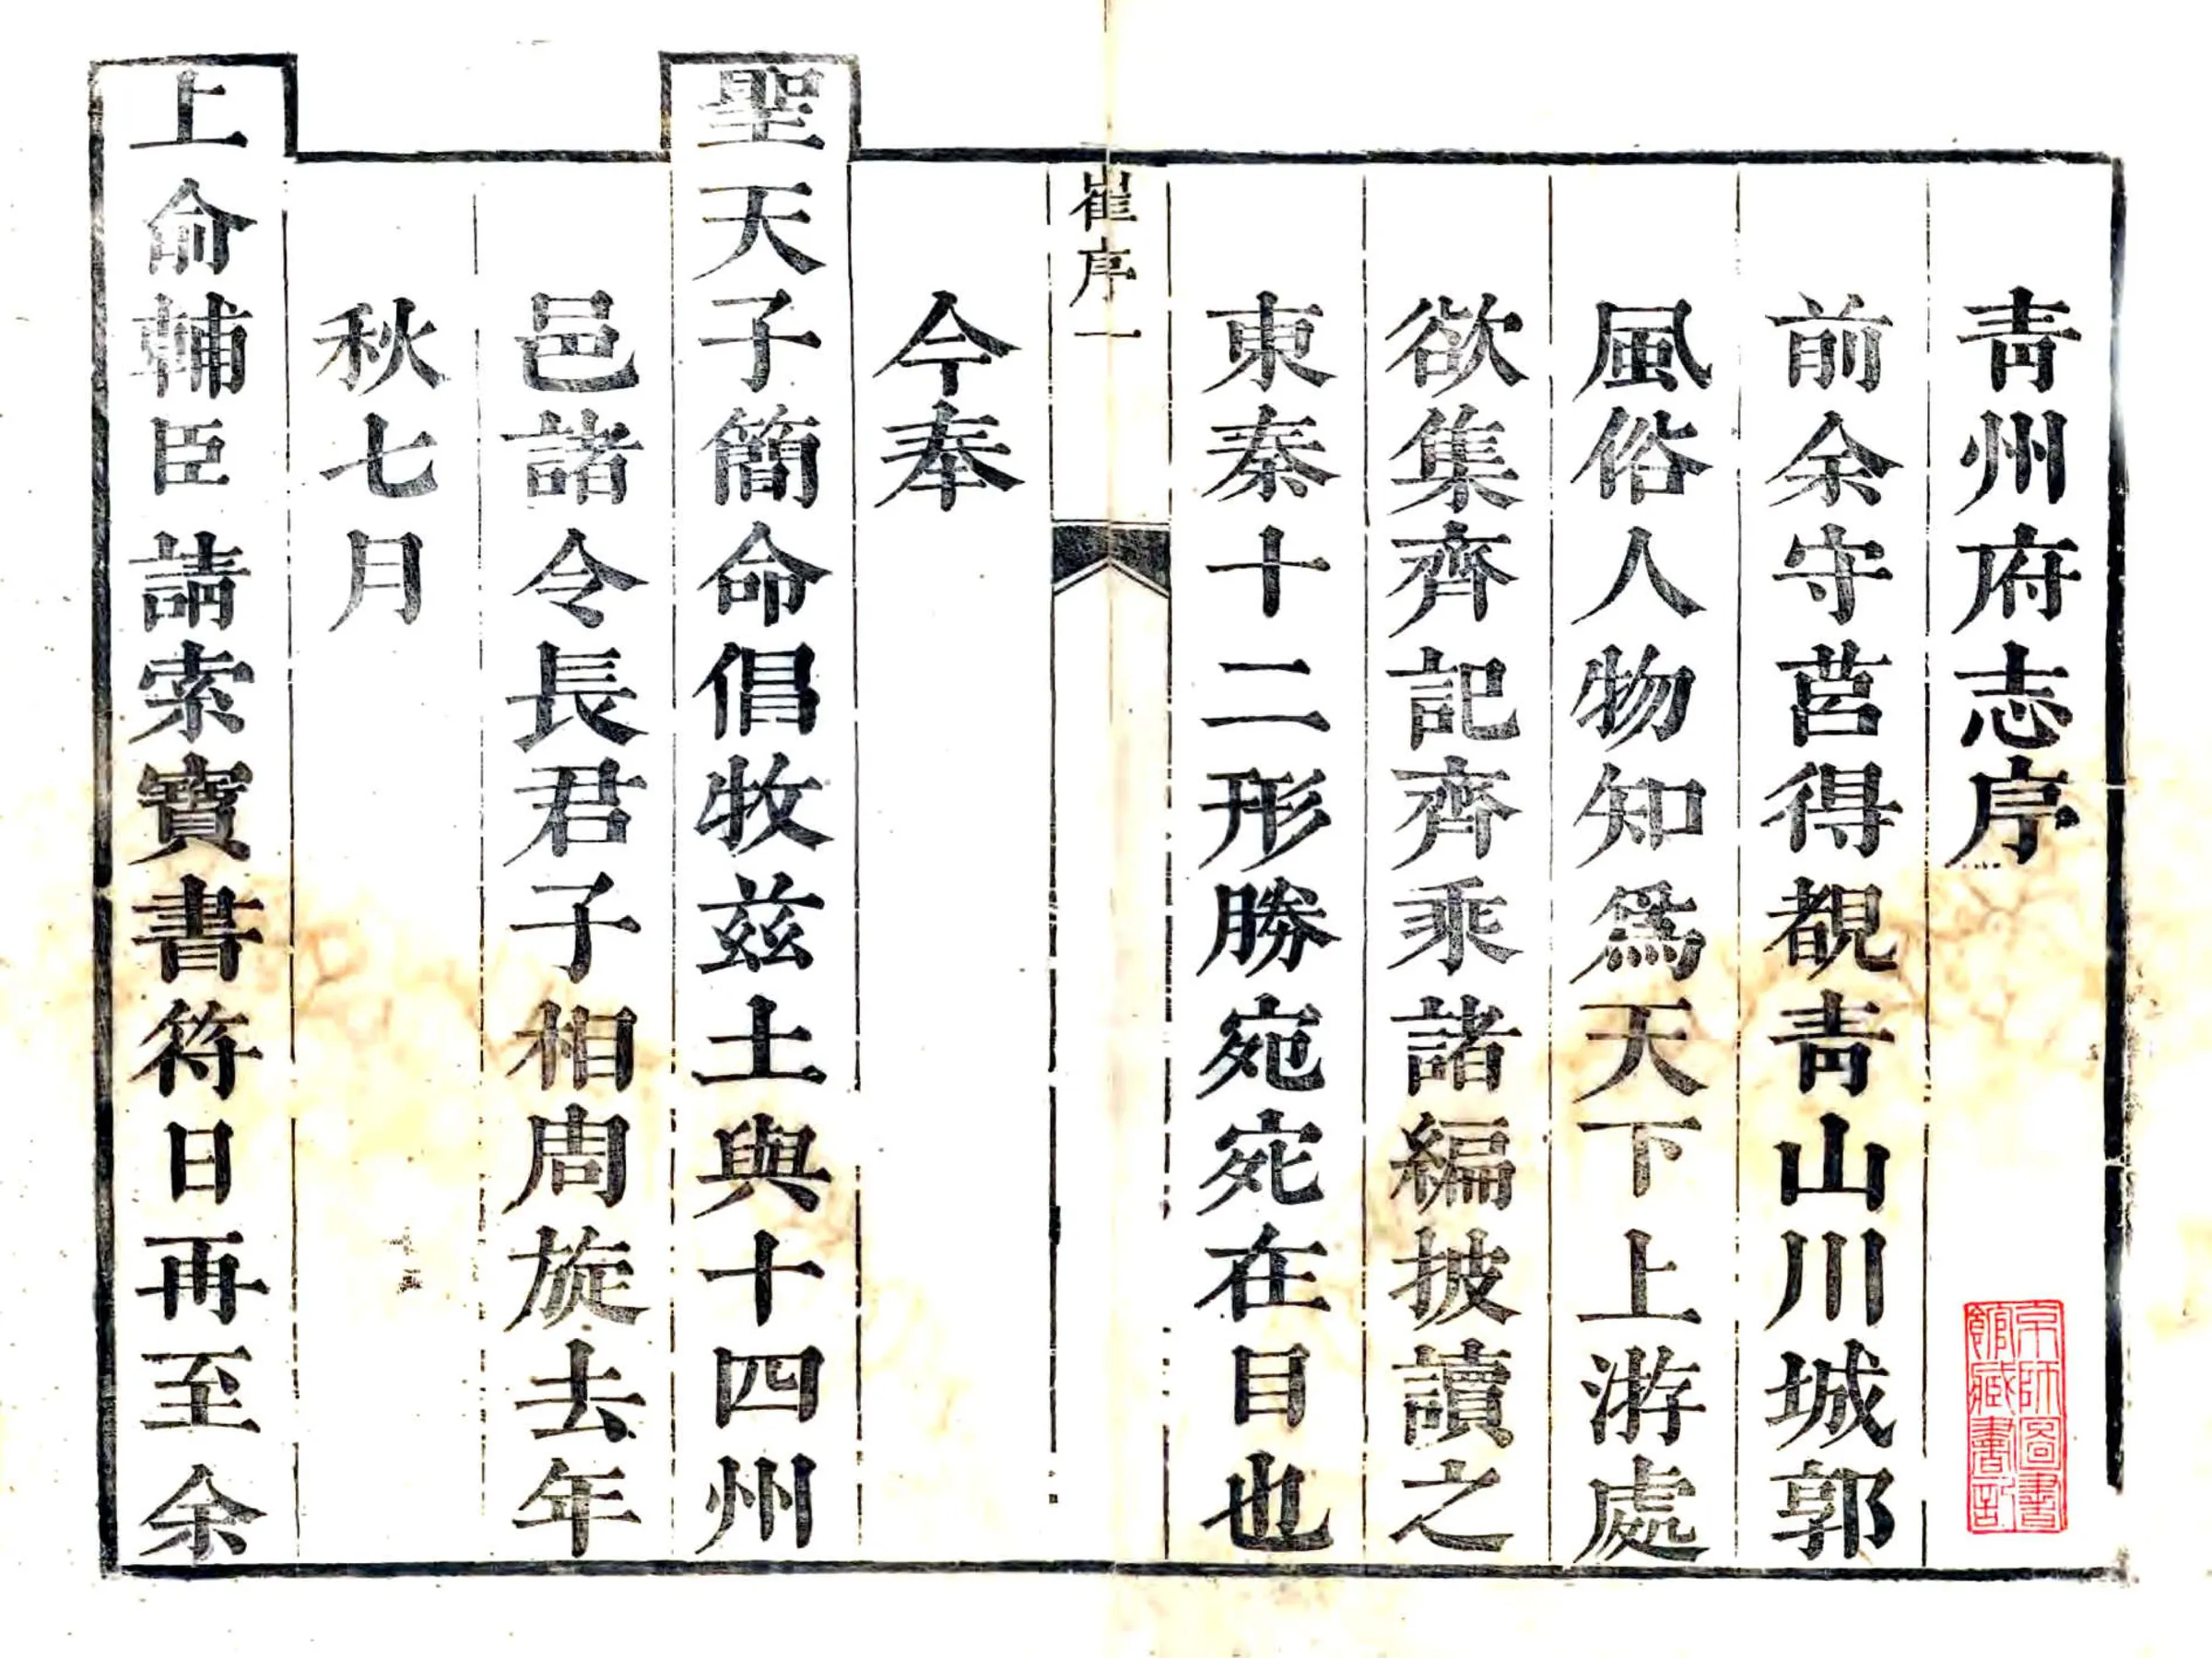 青州府志序
前余守莒得覩青山川城郭
風俗人物知爲天下上游處
欲集齊記齊乘諸編披讀之
東秦十二形勝宛宛在目也
崔序一
今奉
聖天子簡命倡牧茲土與十四州
邑諸令長君子相周旋去年
秋七月
上俞輔臣請索寶書符日再至余
京師圖書
館藏書記